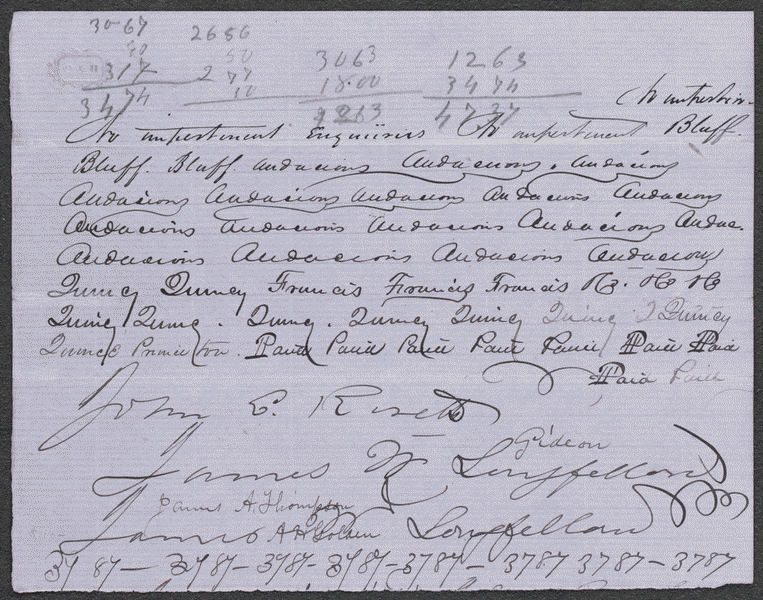 30-67 2686
40 50 3063 1263
317 277 18.00 3474
3474 10 4263 4737
No impertinent
No impertinent Enquiiries No impertinent Bluff.
Bluff. Bluff. Audacious Audacious. Audacious
Audacious Audacious Audacious Audacious Audacious
Audacious Audacious Audacious Audacious Audac.
Audacious Audacious Audacious Audacious
Quincy Quincy Francis Francis Francis
Quincy Quinc. Quincy. Quincy Quincy Quincy Quincy
Princeton. Paid Paid Paid Paid Paid Paid Paid
Paid Paid
John C.
Gideon
James W Longfellow
James A. Thompson
James Longfellow
3787- 3787- 3787- 3787- 3787- 3787 3787- 3787